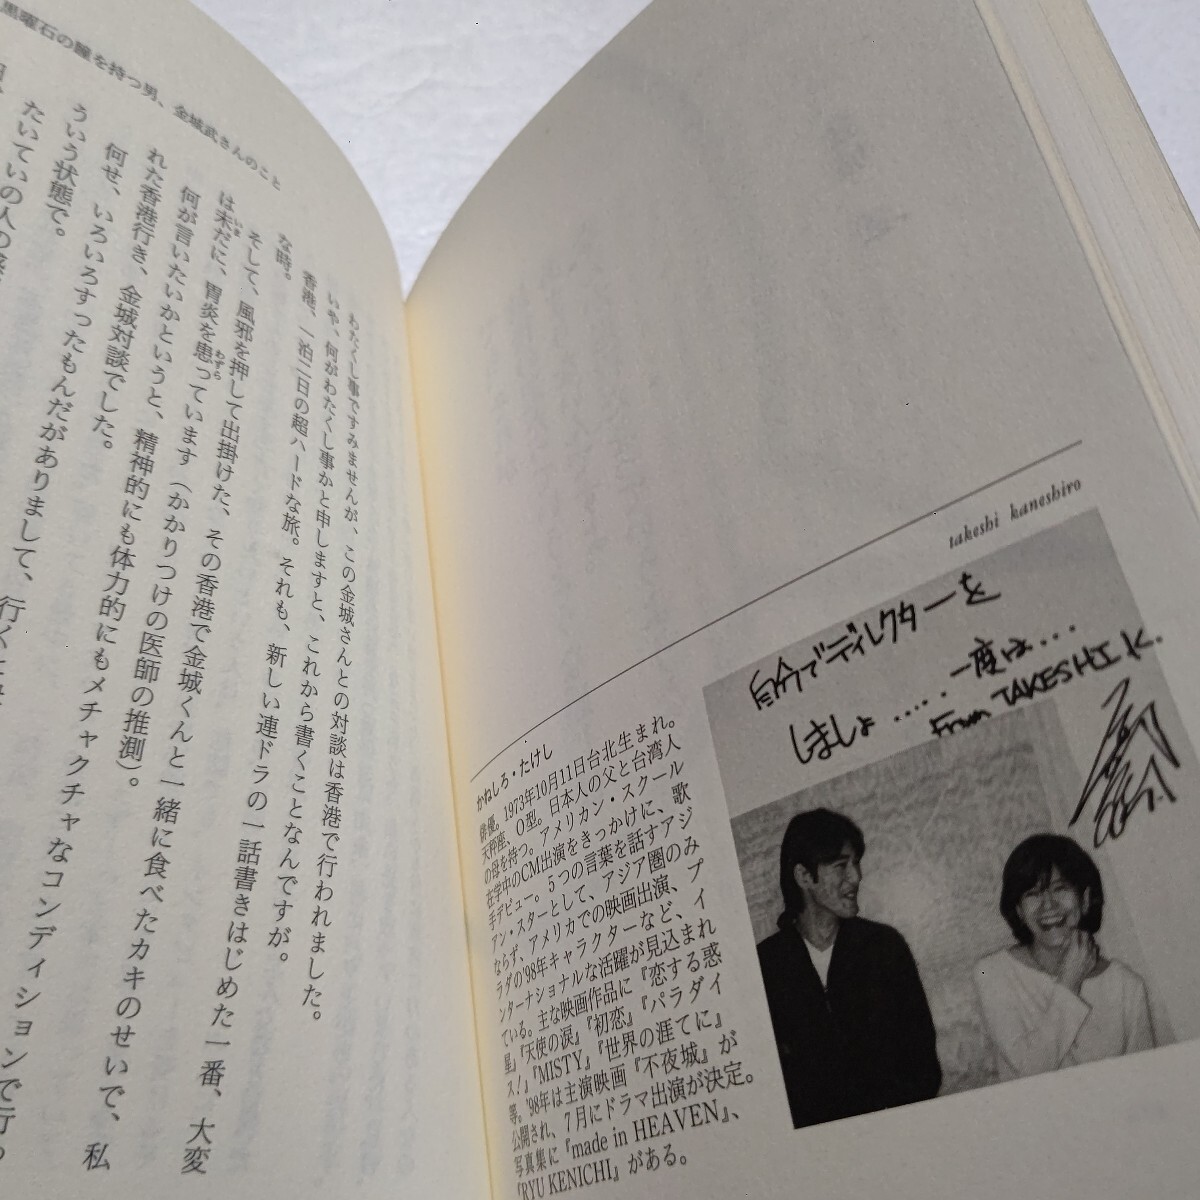 黒曜石の瞳を持つ男、金城武さんのこと
わたくし事ですみませんが、この金城さんとの対談は香港で行われました。
いや、何がわたくし事かと申しますと、これから書くことなんですが。
香港、一泊二日の超ハードな旅。それも、新しい連ドラの一話書きはじめた一番、大変
な時。
そして、風邪を押して出掛けた、その香港で金城くんと一緒に食べたカキのせいで、私
は未だに、胃炎を患っています（かかりつけの医師の推測）。
何が言いたいかというと、精神的にも体力的にもメチャクチャなコンディションで行わ
れた香港行き、金城対談でした。
何せ、いろいろすったもんだがありまして、
ういう状態で。
たいていの人の
takeshi kaneshiro
自分でディレクターを
しましょ....一度は...
From TAKESHI K.
かねしろ・たけし
俳優。1973年10月11日台北生まれ。
天秤座、O型。日本人の父と台湾人
の母を持つ。アメリカン・スクール
在学中のCM出演をきっかけに、歌
手デビュー。5つの言葉を話すアジ
アン・スターとして、アジア圏のみ
ならず、アメリカでの映画出演、プ
ラダの'98年キャラクターなど、イ
ンターナショナルな活躍が見込まれ
ている。主な映画作品に『恋する惑
星』『天使の涙』『初恋』『パラダイ
ス！』『MISTY』『世界の涯てに』
等。'98年は主演映画『不夜城』が
公開され、7月にドラマ出演が決定。
写真集に『made in HEAVEN』、
『RYU KENICHI』がある。